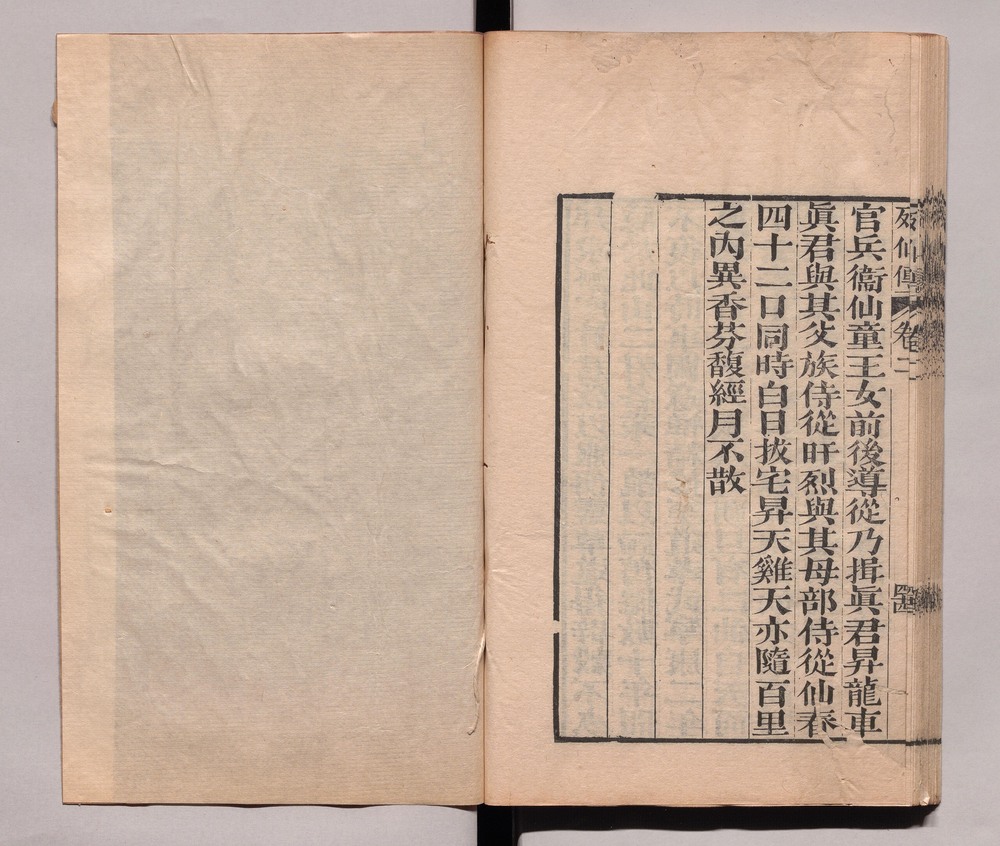 仙傳 卷二
官兵衞仙童王女前後導從乃揖眞君昇龍車
眞君與其父族侍從旰烈與其母部侍從仙眷
四十二口同時白日拔宅昇天雞天亦隨百里
之內異香芬馥經月不散